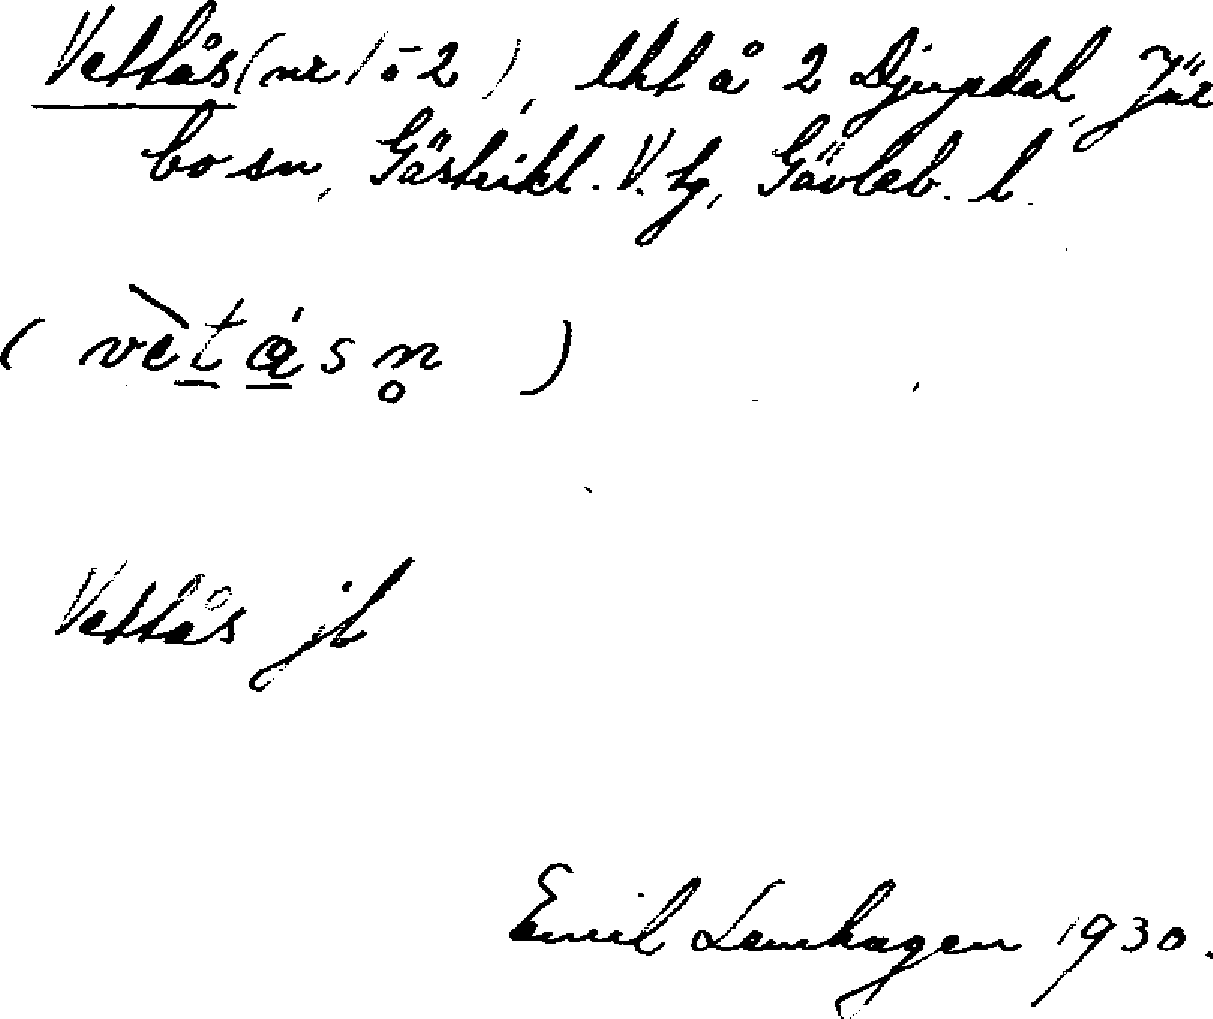 Vettås (nr 1 o 2), lht å 2 Djupdal, Jär
bo sn, Gästrikl. V. tg, Gävleb. l.
( vètásn̥ )
Vettås jb
Emil Lemhagen 1930.